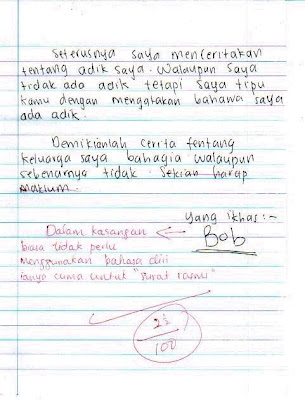 Seterusnya saya menceritakan
tentang adik saya. Walaupun saya
tidak ada adik tetapi saya tipu
kamu dengan mengatakan bahawa saya
ada adik.
Demikianlah cerita tentang
keluarga saya bahagia walaupun
sebenarnya tidak. Sekian harap
maklum.
Yang ikhas :-
Bob
Dalam kasangan
biasa tidak perlu
menggunakan bahasa diri
ianya cuma untuk "surat rasmi"
100